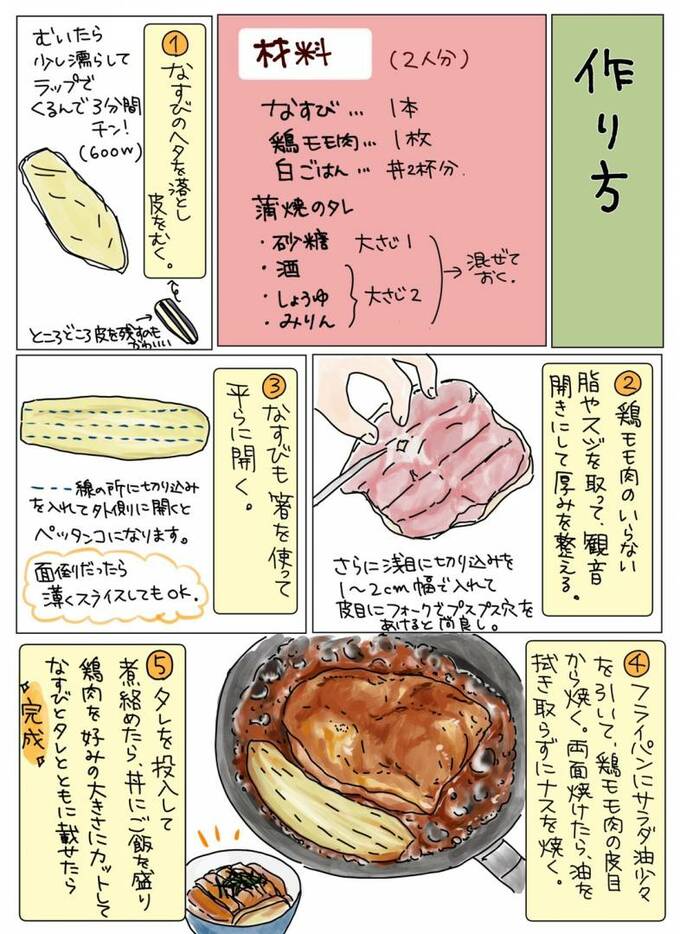 作り方
材料 (2人分)
なすび… 1本
鶏モモ肉… 1枚
白ごはん… 丼2杯分.
蒲焼のタレ
・砂糖 大さじ1
・酒
・しょうゆ 大さじ2
・みりん
→混ぜて
おく.
①なすびのヘタを落とし
皮をむく。
むいたら
少し濡らして
ラップで
くるんで3分間
チン!
(600W)
ところどころ皮を残すのも
かわいい
②鶏モモ肉のいらない
脂やスジを取って、観音
開きにして厚みを整える。
さらに浅目に切り込みを
1〜2cm幅で入れて
皮目にフォークでプスプス穴を
あけると尚良し。
③なすびも箸を使って
平らに開く。
---線の所に切り込み
を入れて外側に開くと
ペッタンコになります。
面倒だったら
薄くスライスしてもOK.
④フライパンにサラダ油少々
を引いて、鶏モモ肉の皮目
から焼く。両面焼けたら、油を
拭き取らずにナスを焼く。
⑤タレを投入して
煮絡めたら、丼にご飯を盛り
鶏肉を好みの大きさにカットして
なすびとタレとともに載せたら
完成